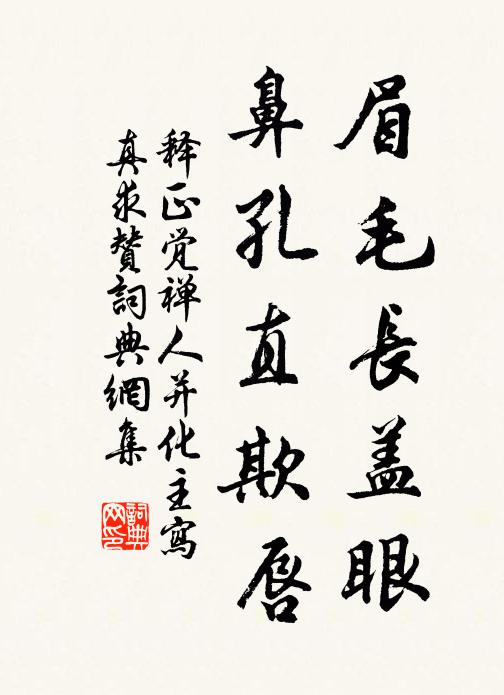 眉毛長盖眼
鼻孔直欺唇
释正觉禅人并化主寫
真求赞詞典網集
詞典网印